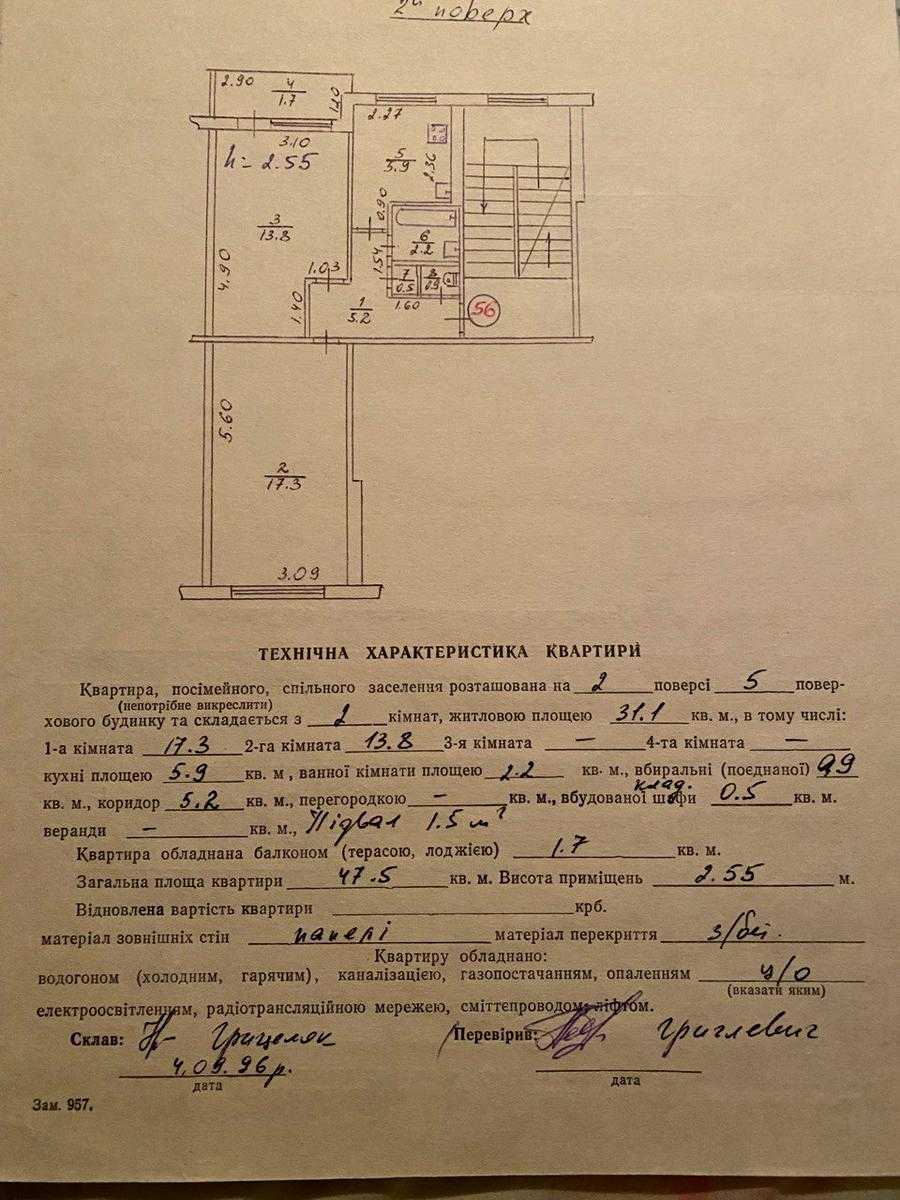 2й поверх
2.90
4
1.7
1.20
3.10
h = 2.55
2.27
5
5.9
2.36
3
13.8
0.90
6
2.2
1.54
4.90
1.03
7
0.5
8
0.9
1.40
1
5.2
1.60
56
5.60
2
17.3
3.09
ТЕХНІЧНА ХАРАКТЕРИСТИКА КВАРТИРИ
Квартира, посімейного, спільного заселення розташована на 2 поверсі 5 повер-
(непотрібне викреслити)
хового будинку та складається з 2 кімнат, житловою площею 31.1 кв. м., в тому числі:
1-а кімната 17.3 2-га кімната 13.8 3-я кімната — 4-та кімната —
кухні площею 5.9 кв. м, ванної кімнати площею 2.2 кв. м., вбиральні (поєднаної) 0.9
клад.
кв. м., коридор 5.2 кв. м., перегородкою — кв. м., вбудованої шафи 0.5 кв. м.
веранди — кв. м., Підвал 1.5 м²
Квартира обладнана балконом (терасою, лоджією) 1.7 кв. м.
Загальна площа квартири 47.5 кв. м. Висота приміщень 2.55 м.
Відновлена вартість квартири крб.
матеріал зовнішніх стін панелі матеріал перекриття з/бет.
Квартиру обладнано:
водогоном (холодним, гарячим), каналізацією, газопостачанням, опаленням ц/о
(вказати яким)
електроосвітленням, радіотрансляційною мережею, сміттєпроводом, ліфтом.
Склав: Грицеляк Перевірив: Григлевич
4.09.96 р.
дата
дата
Зам. 957.